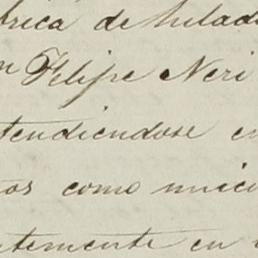 brica de hilado
n Felipe Neri
tendiendose en
nos como unic
ntemente en